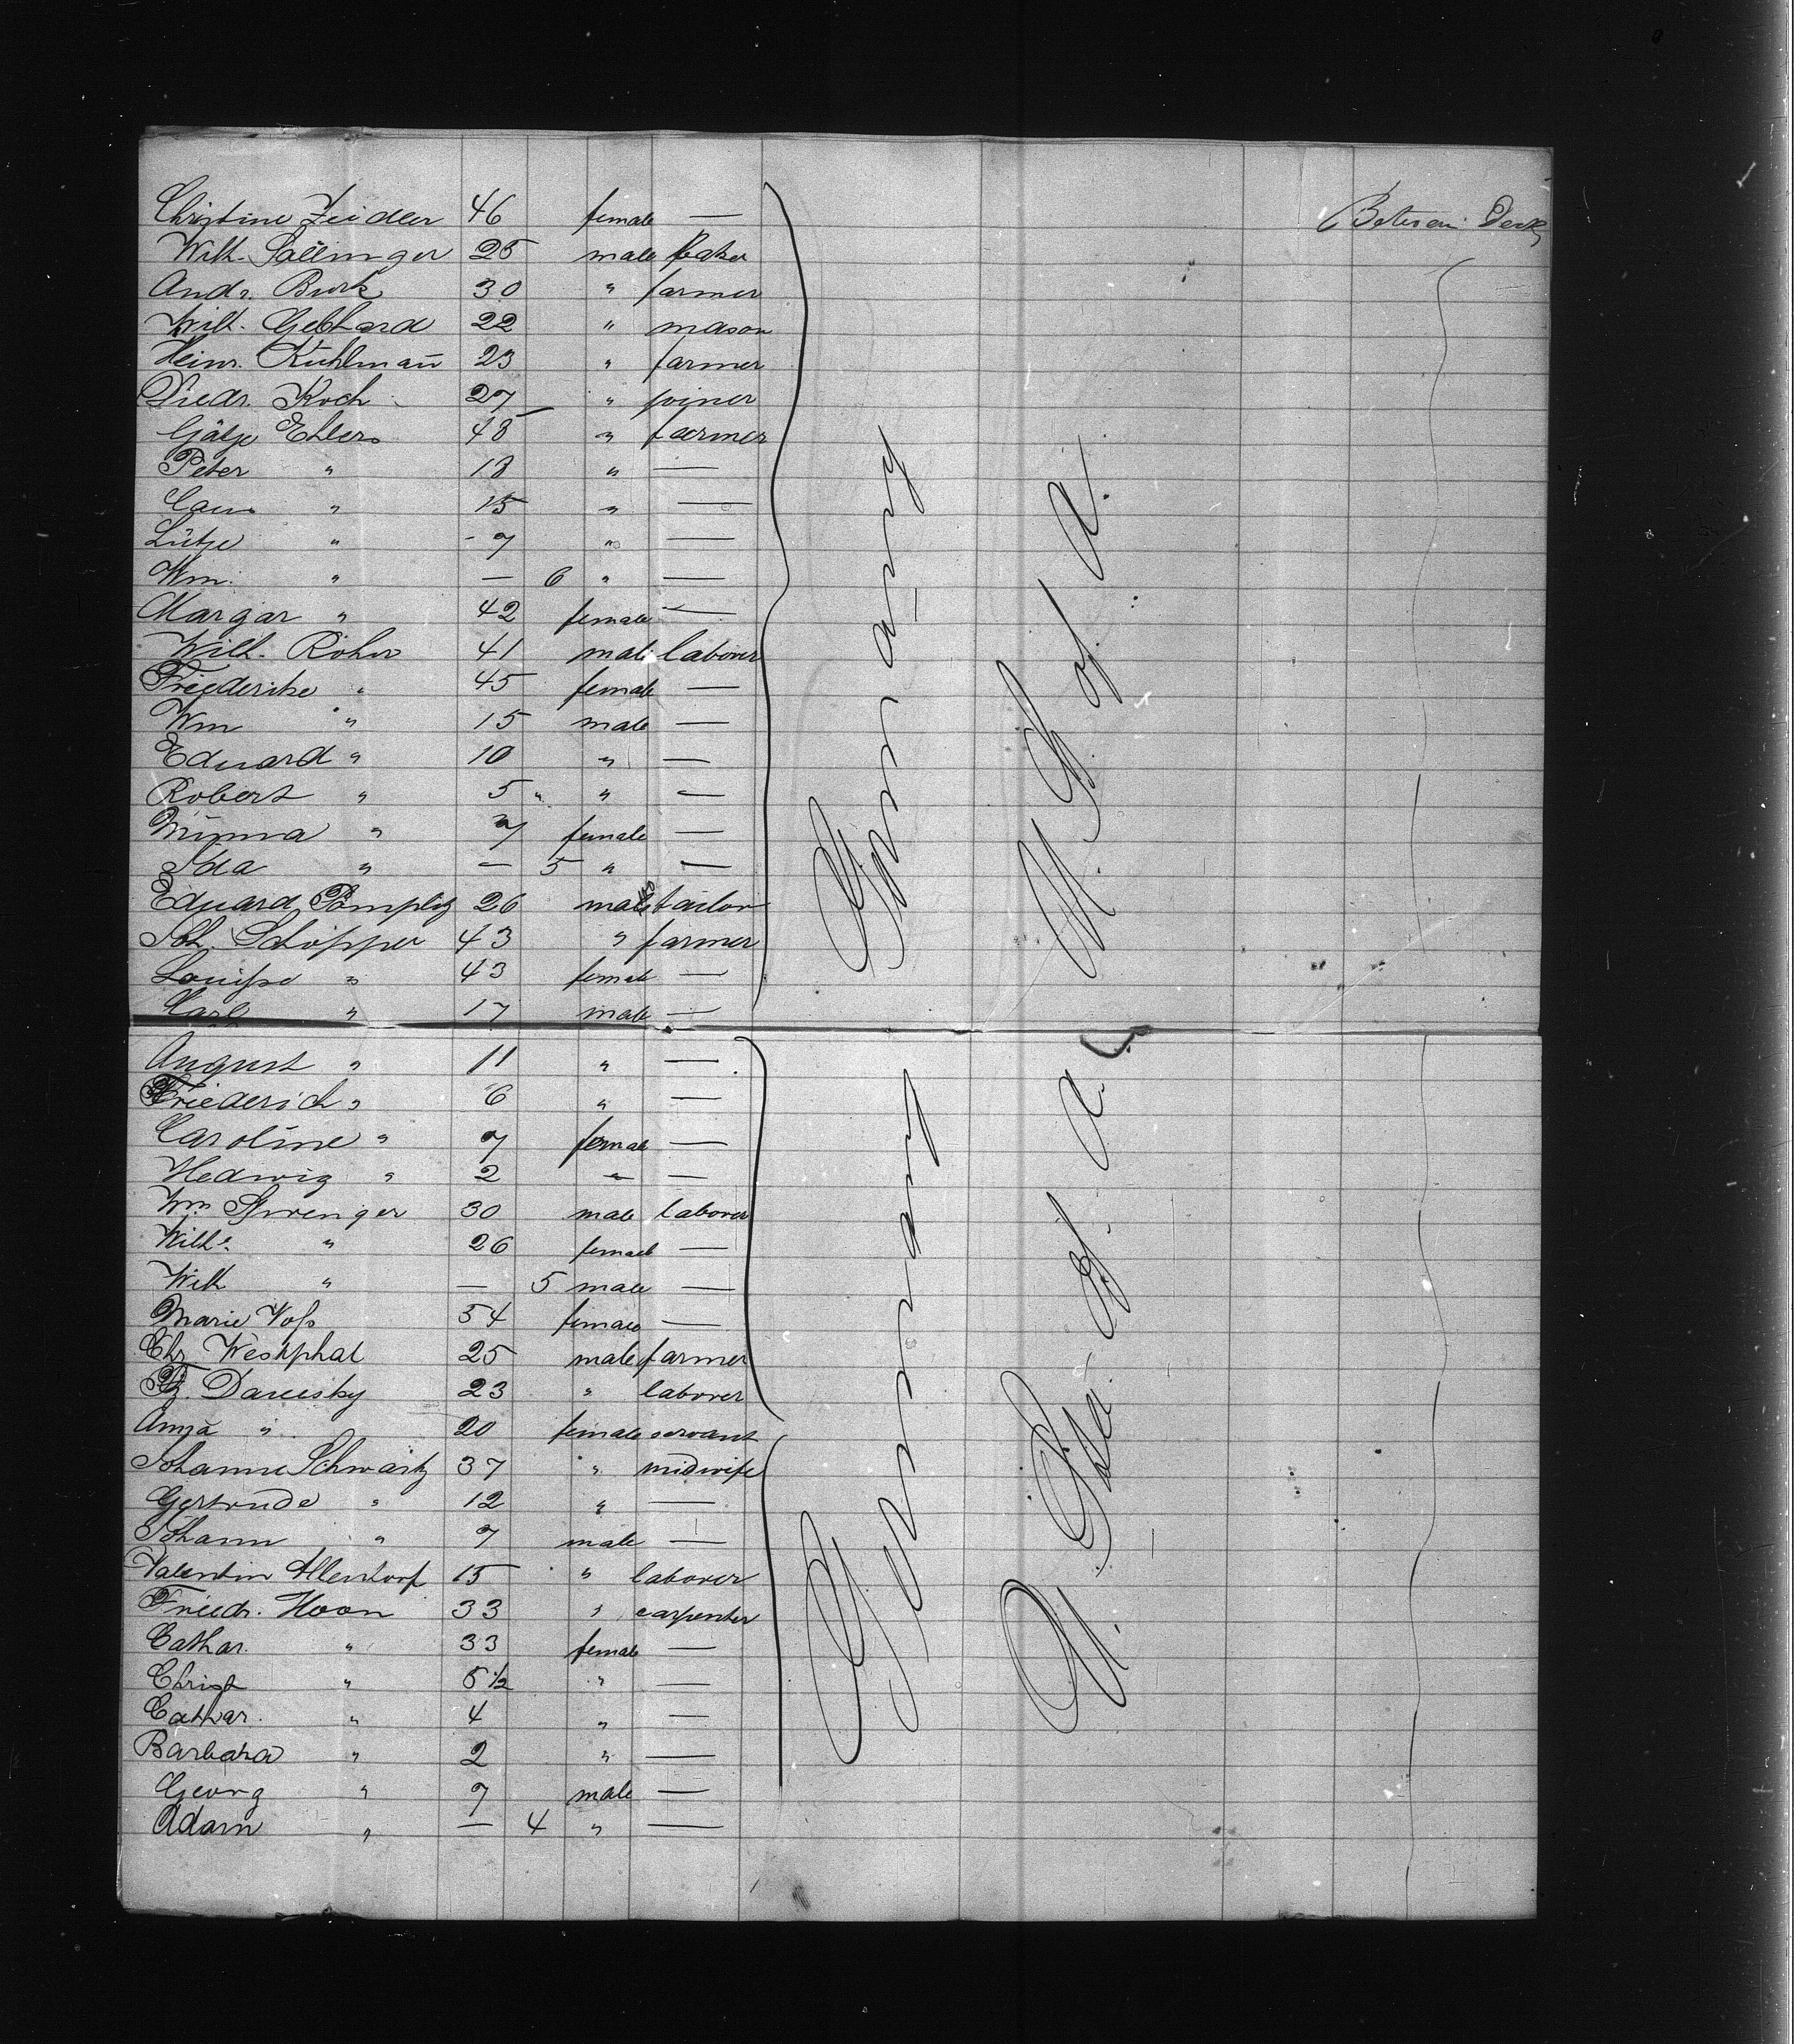 Christine Zeidler 46 female — Between Deck
Wilh. Söllinger 25 male baker
Andr. Burk 30 " farmer
Wilh. Gebhard 22 " mason
Heinr. Kuhlmañ 23 " farmer
Diedr. Koch 27 " joiner
Götje Ehlers 48 " farmer
Peter " 18 " —
Claus " 15 " —
Lütje " 7 " —
Wm. " — 6 " —
Margar " 42 female —
Wilh. Röher 41 male laborer
Friederike " 45 female —
Wm " 15 male —
Eduard " 10 " —
Robert " 5 " " —
Minna " 7 female —
Ida " — 5 " —
Eduard Pomplitz 26 male tailor
Joh. Schöpper 43 " farmer
Louise " 43 female —
Carl " 17 male —
Germany
U. S. of A.
August " 11 " —
Friederich " 6 " —
Caroline " 7 female —
Hedwig " 2 " —
Wm Sprenger 30 male laborer
Wilhe. " 26 female —
Wilh " — 5 male —
Marie Voss 54 female —
Chr Westphal 25 male farmer
Fz. Darensky 23 " laborer
Anna " 20 female servant
Johanne Schwartz 37 " midwife
Gertrude " 12 " —
Johann " 7 male —
Valentin Allendorf 15 " laborer
Friedr. Hoon 33 " carpenter
Cathar. " 33 female —
Christ " 5 1/2 " —
Cathar. " 4 " —
Barbara " 2 " —
Georg " 7 male —
Adam " — 4 " —
Germany
U. of A.